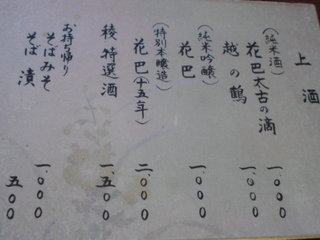 上酒
(純米酒)
花巴太古の滴 一、〇〇〇
越の鶴 一、〇〇〇
(純米吟醸)
花巴 一、〇〇〇
(特別本醸造)
花巴(十五年) 二、〇〇〇
稜特選酒 一、五〇〇
お持ち帰り
そばみそ 一、〇〇〇
そば漬 五〇〇